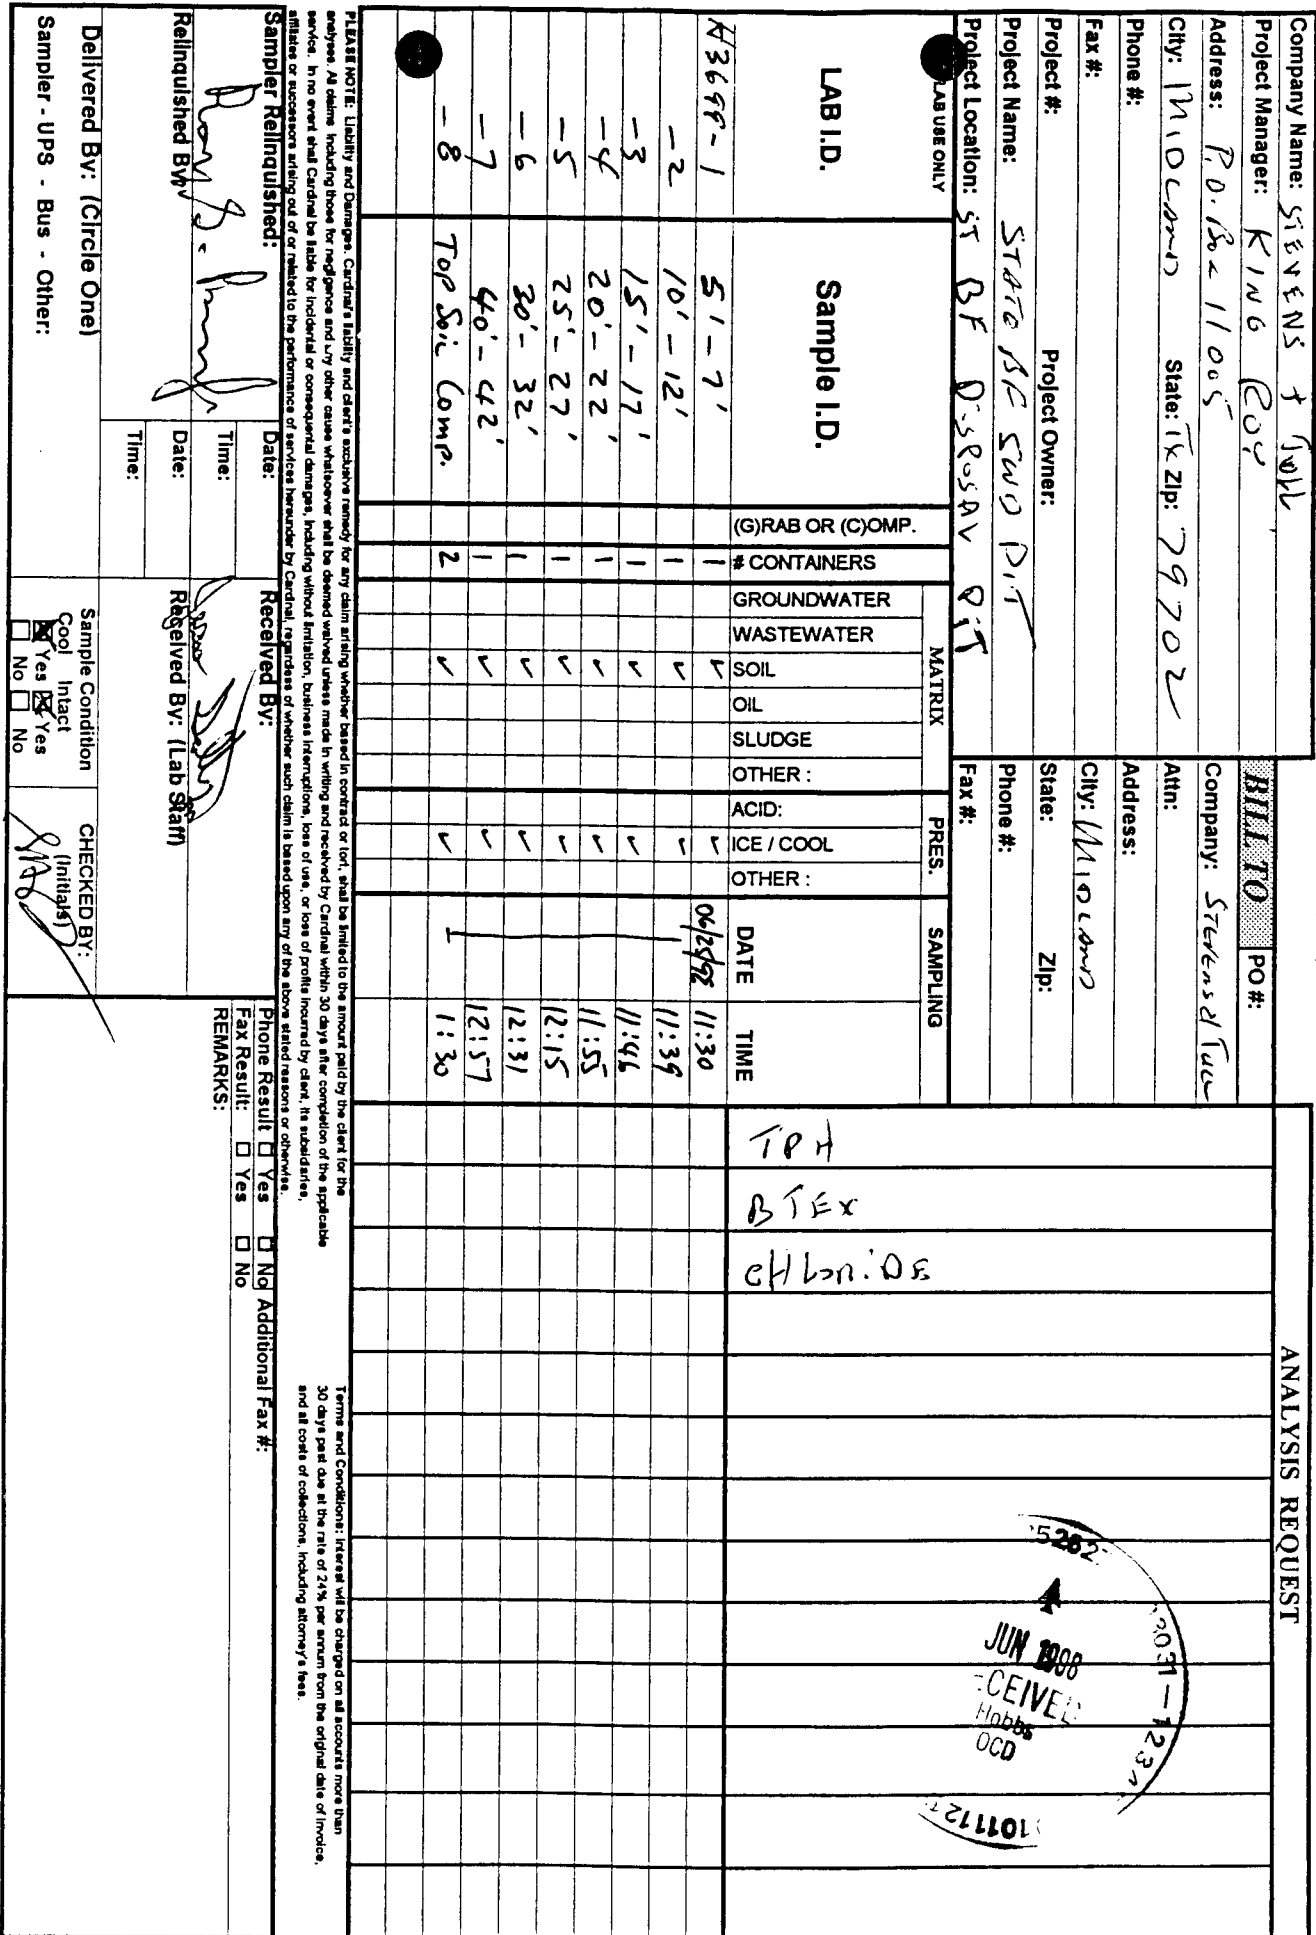 Company Name: STEVENS + Tull
Project Manager: KING ROY
Address: P.O. Box 11005
City: MIDLAND State: Tx Zip: 79702
Phone #:
Fax #:
Project #: Project Owner:
Project Name: STATE BF SWD PIT
Project Location: ST BF DISPOSAL PIT
BILL TO PO #:
Company: Stevens & Tull
Attn:
Address:
City: MIDLAND
State: Zip:
Phone #:
Fax #:
ANALYSIS REQUEST
LAB USE ONLY
MATRIX PRES. SAMPLING
LAB I.D. Sample I.D. (G)RAB OR (C)OMP. # CONTAINERS GROUNDWATER WASTEWATER SOIL OIL SLUDGE OTHER : ACID: ICE / COOL OTHER : DATE TIME TPH BTEX CHLORIDE
H3699-1 5'-7' 1 ✓ ✓ 06/25/98 11:30
-2 10'-12' 1 ✓ ✓ 11:39
-3 15'-17' 1 ✓ ✓ 11:46
-4 20'-22' 1 ✓ ✓ 11:55
-5 25'-27' 1 ✓ ✓ 12:15
-6 30'-32' 1 ✓ ✓ 12:31
-7 40'-42' 1 ✓ ✓ 12:57
-8 TOP Soil Comp. 2 ✓ ✓ 1:30
JUN 1998
CEIVED
Hobbs
OCD
PLEASE NOTE: Liability and Damages. Cardinal's liability and client's exclusive remedy for any claim arising whether based in contract or tort, shall be limited to the amount paid by the client for the
analyses. All claims including those for negligence and any other cause whatsoever shall be deemed waived unless made in writing and received by Cardinal within 30 days after completion of the applicable
service. In no event shall Cardinal be liable for incidental or consequental damages, including without limitation, business interruptions, loss of use, or loss of profits incurred by client, its subsidiaries,
affiliates or successors arising out of or related to the performance of services hereunder by Cardinal, regardless of whether such claim is based upon any of the above stated reasons or otherwise.
Terms and Conditions: Interest will be charged on all accounts more than
30 days past due at the rate of 24% per annum from the original date of invoice,
and all costs of collections, including attorney's fees.
Sampler Relinquished: Date: Received By:
Time:
Relinquished By: Date: Received By: (Lab Staff)
Time:
Delivered By: (Circle One)
Sampler - UPS - Bus - Other:
Sample Condition
Cool Intact
Yes Yes
No No
CHECKED BY:
(Initials)
Phone Result Yes No Additional Fax #:
Fax Result: Yes No
REMARKS: